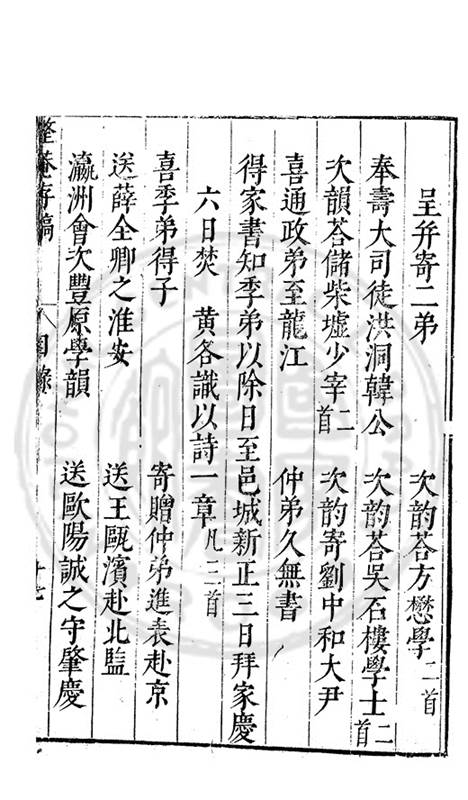 呈并寄二弟　次韵荅方懋學二首
奉壽大司徒洪洞韓公　次韵荅吴石樓學士二首
次韻荅儲柴墟少宰二首　次韵寄劉中和大尹
喜通政弟至龍江　仲弟久無書
得家書知季弟以除日至邑城新正三日拜家慶
六日焚　黄各識以詩一章凡三首
喜季弟得子　寄贈仲弟進表赴京
送薛全卿之淮安　送王甌濱赴北監
瀛洲會次豐原學韻　送歐陽誠之守肇慶
整菴存稿　目錄